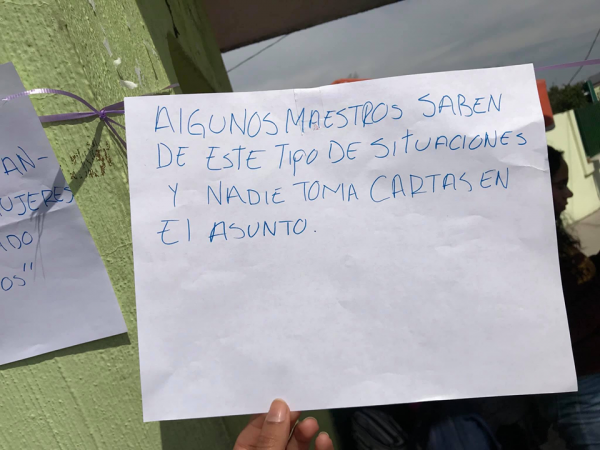 AN-
UJERES
DO
OS"
ALGUNOS MAESTROS SABEN
DE ESTE TIPO DE SITUACIONES
Y NADIE TOMA CARTAS EN
El ASUNTO.